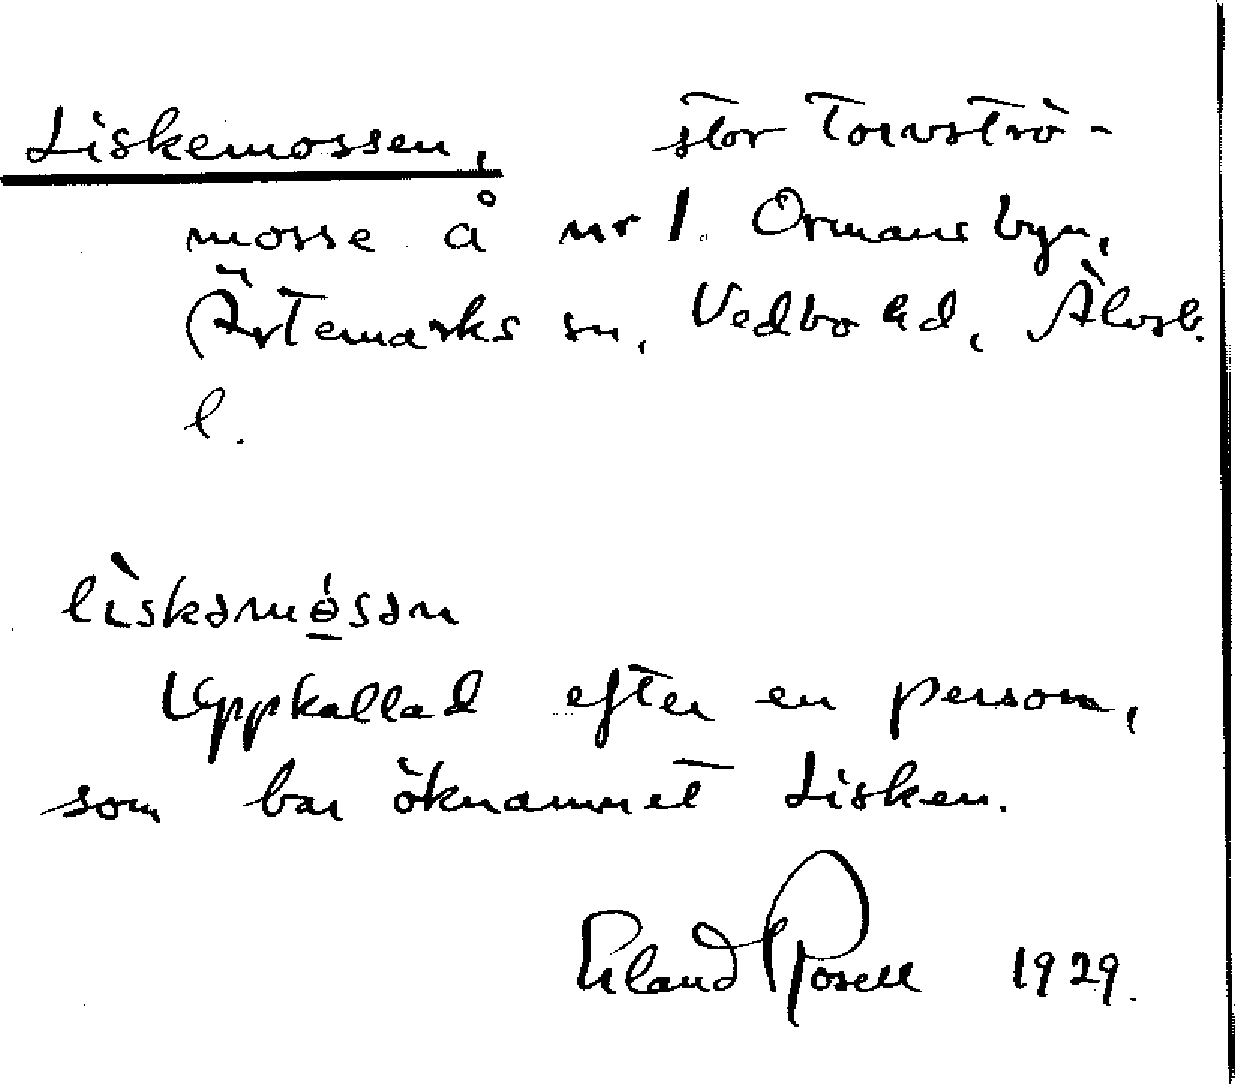 Liskemossen, stor torvströ-
mosse å nr 1. Ormansbyn,
Ärtemarks sn, Vedbo hd, Älvsb.
l.
lìskəmɵ́sən
Uppkallad efter en person,
som bar öknamnet Lisken.
Erland Rosell 1929.